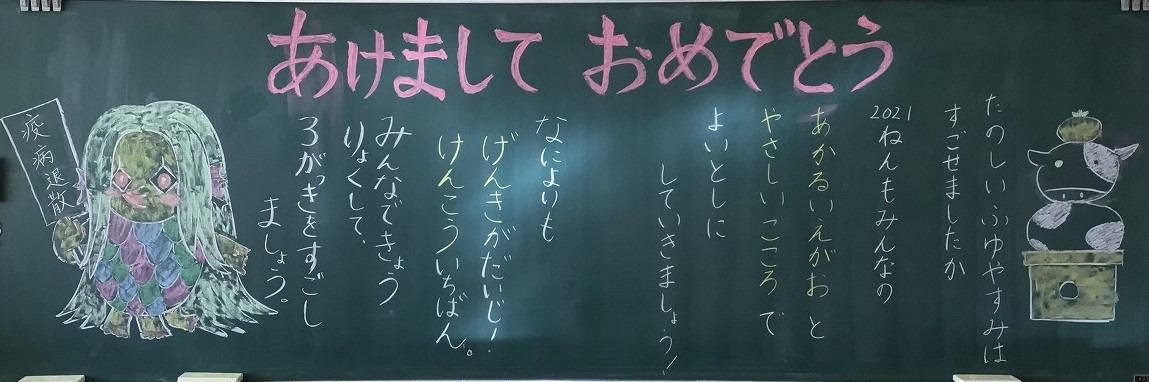 あけまして おめでとう
たのしいふゆやすみは
すごせましたか
2021ねんもみんなの
あかるいえがおと
やさしいこころで
よいとしに
していきましょう！
なによりも
げんきがだいじ！
けんこういちばん。
みんなできょう
りょくして、
3がっきをすごし
ましょう。
疫病退散